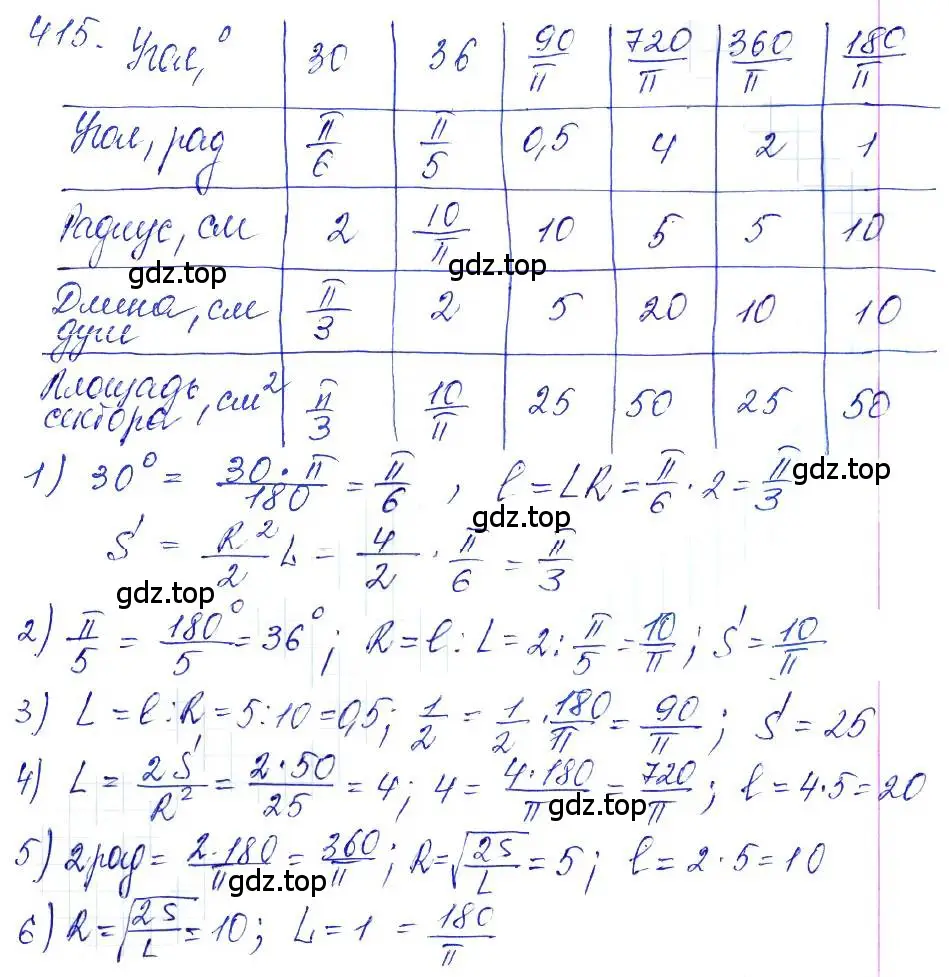 415. Угол,° | 30 | 36 | 90/π | 720/π | 360/π | 180/π
Угол, рад | π/6 | π/5 | 0,5 | 4 | 2 | 1
Радиус, см | 2 | 10/π | 10 | 5 | 5 | 10
gdz.top gdz.top
Длина, см дуги | π/3 | 2 | 5 | 20 | 10 | 10
Площадь сектора, см² | π/3 | 10/π | 25 | 50 | 25 | 50
1) 30° = 30·π/180 = π/6 , ℓ = LR = π/6 · 2 = π/3
gdz.top
gdz.top
S = R²/2 L = 4/2 · π/6 = π/3
gdz.top
2) π/5 = 180°/5 = 36°; R = ℓ : L = 2 : π/5 = 10/π ; S = 10/π
3) L = ℓ : R = 5 : 10 = 0,5; 1/2 = 1/2 · 180/π = 90/π ; S = 25
4) L = 2S/R² = 2·50/25 = 4; 4 = 4·180/π = 720/π ; ℓ = 4·5 = 20
gdz.top
5) 2 рад = 2·180/π = 360/π ; R = √(2S/L) = 5; ℓ = 2·5 = 10
gdz.top
6) R = √(2S/L) = 10; L = 1 = 180/π